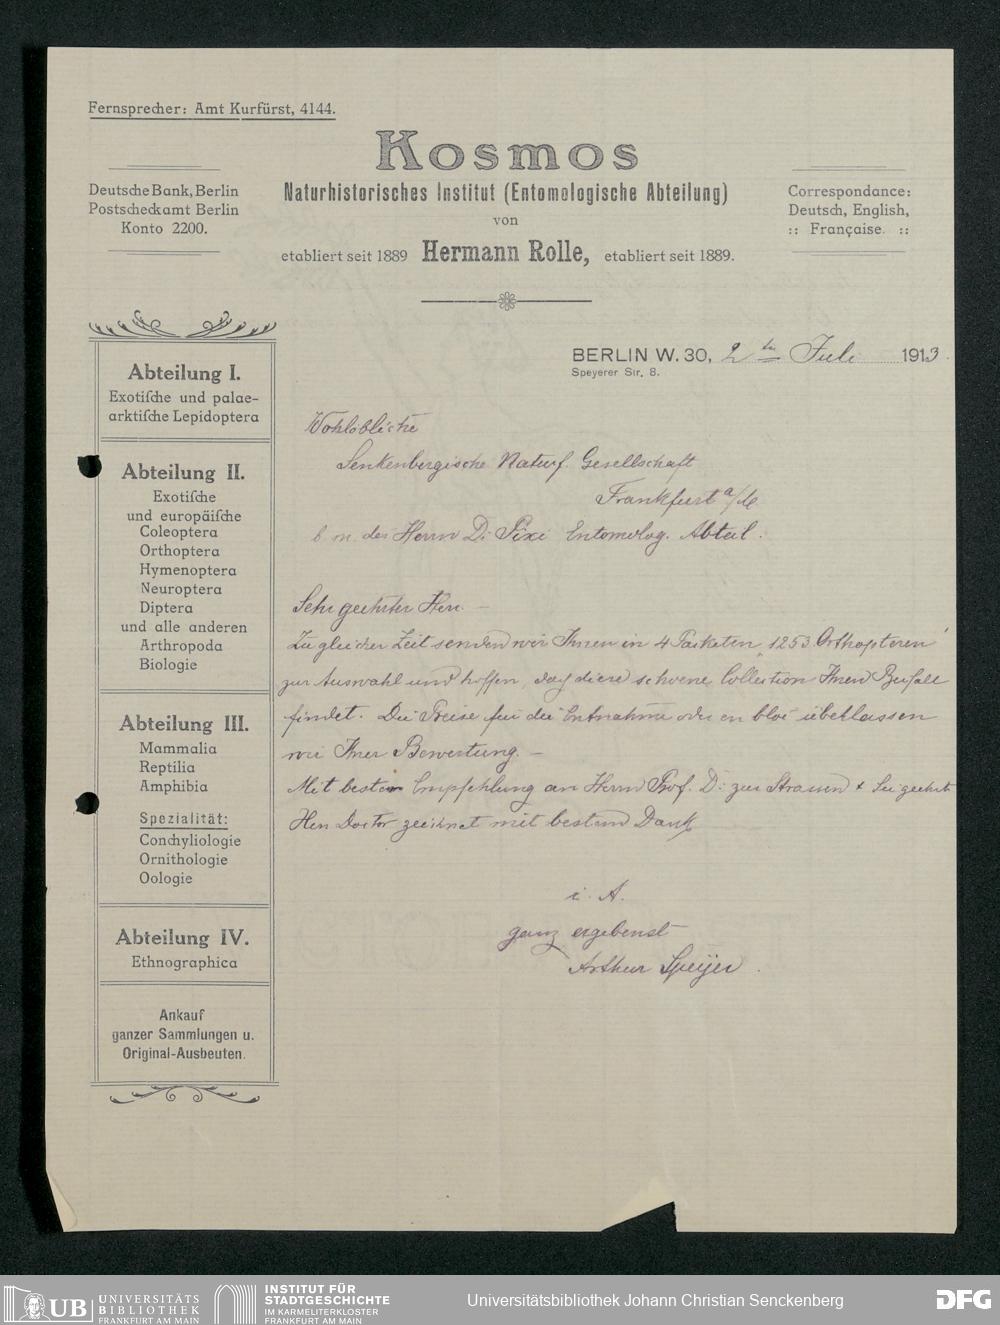 Fernsprecher: Amt Kurfürst, 4144.
Kosmos
Naturhistorisches Institut (Entomologische Abteilung)
von
etabliert seit 1889 Hermann Rolle, etabliert seit 1889.
Deutsche Bank, Berlin
Postscheckamt Berlin
Konto 2200.
Correspondance:
Deutsch, English,
:: Française. ::
BERLIN W. 30, 2 ten Juli 1913.
Speyerer Str. 8.
Abteilung I.
Exotische und palae-
arktische Lepidoptera
Abteilung II.
Exotische
und europäische
Coleoptera
Orthoptera
Hymenoptera
Neuroptera
Diptera
und alle anderen
Arthropoda
Biologie
Abteilung III.
Mammalia
Reptilia
Amphibia
Spezialität:
Conchyliologie
Ornithologie
Oologie
Abteilung IV.
Ethnographica
Ankauf
ganzer Sammlungen u.
Original-Ausbeuten.
Wohllöbliche
Senkenbergische Naturf. Gesellschaft
Frankfurt a/M.
des Herrn Dr Entomolog. Abteil.
Sehr geehrter Herr. —
Zu gleicher Zeit senden wir Ihnen in 4 Packeten „1253 Orthopteren"
zur Auswahl und hoffen, dass diese schoene Collection Ihren Beifall
findet. Die Preise für die Entnahme oder en bloc überlassen
wir Ihrer Bewertung. —
Mit bestem Empfehlung an Herrn Prof. Dr zur Strassen + Sie geehrt
Herr Doctor zeichnet mit bestem Dank
i. A.
ganz ergebenst
Arthur Speyer.
UB UNIVERSITÄTS
BIBLIOTHEK
FRANKFURT AM MAIN
INSTITUT FÜR
STADTGESCHICHTE
IM KARMELITERKLOSTER
FRANKFURT AM MAIN
Universitätsbibliothek Johann Christian Senckenberg
DFG